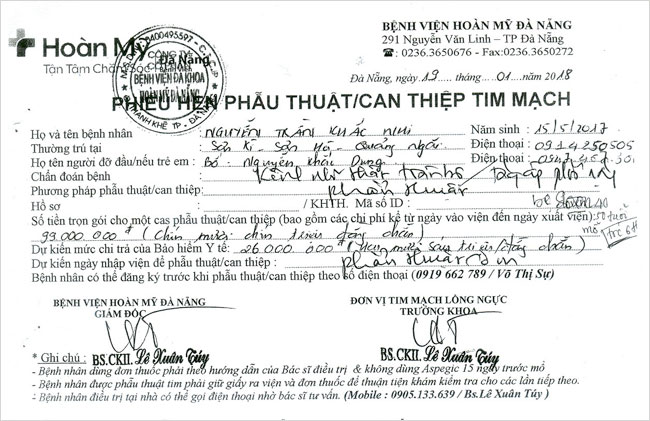 BỆNH VIỆN HOÀN MỸ ĐÀ NẴNG
291 Nguyễn Văn Linh – TP Đà Nẵng
☎: 0236.3650676 - Fax:0236.3650272
Hoàn Mỹ
Đà Nẵng
Tận Tâm Chăm Sóc
M.S.D.N: 0400495597 - C.T.C.P
CÔNG TY
CỔ PHẦN
BỆNH VIỆN ĐA KHOA
HOÀN MỸ ĐÀ NẴNG
Q. THANH KHÊ - TP ĐÀ NẴNG
Đà Nẵng, ngày 19 tháng 01 năm 2018
PHIẾU HẸN PHẪU THUẬT/CAN THIỆP TIM MẠCH
Họ và tên bệnh nhân : NGUYỄN TRẦN KHẮC NHI Năm sinh : 15/5/2017
Thường trú tại : Quảng Ngãi Điện thoại : 0914250505
Họ tên người đỡ đầu/nếu trẻ em : Bố - Nguyễn Khắc Dung Điện thoại :
Chẩn đoán bệnh : Kênh nhĩ thất
Phương pháp phẫu thuật/can thiệp: phẫu thuật
Hồ sơ / KHTH. Mã số ID :
Số tiền trọn gói cho một cas phẫu thuật/can thiệp (bao gồm các chi phí kể từ ngày vào viện đến ngày xuất viện):
99.000.000đ (Chín mươi chín triệu đồng chẵn)
Dự kiến mức chi trả của Bảo hiểm Y tế: 26.000.000đ (Hai mươi sáu triệu đồng chẵn)
Dự kiến ngày nhập viện để phẫu thuật/can thiệp : phẫu thuật
Bệnh nhân có thể đăng ký trước khi phẫu thuật/can thiệp theo số điện thoại (0919 662 789 / Võ Thị Sự)
BỆNH VIỆN HOÀN MỸ ĐÀ NẴNG
GIÁM ĐỐC
ĐƠN VỊ TIM MẠCH LỒNG NGỰC
TRƯỞNG KHOA
BS.CKII. Lê Xuân Túy
BS.CKII. Lê Xuân Túy
* Ghi chú :
- Bệnh nhân dùng đơn thuốc phải theo hướng dẫn của Bác sĩ điều trị & không dùng Aspegic 15 ngày trước mổ
- Bệnh nhân được phẫu thuật tim phải giữ giấy ra viện và đơn thuốc để thuận tiện khám kiểm tra cho các lần tiếp theo.
- Bệnh nhân điều trị tại nhà có thể gọi điện thoại nhờ bác sĩ tư vấn. (Mobile : 0905.133.639 / Bs.Lê Xuân Túy )